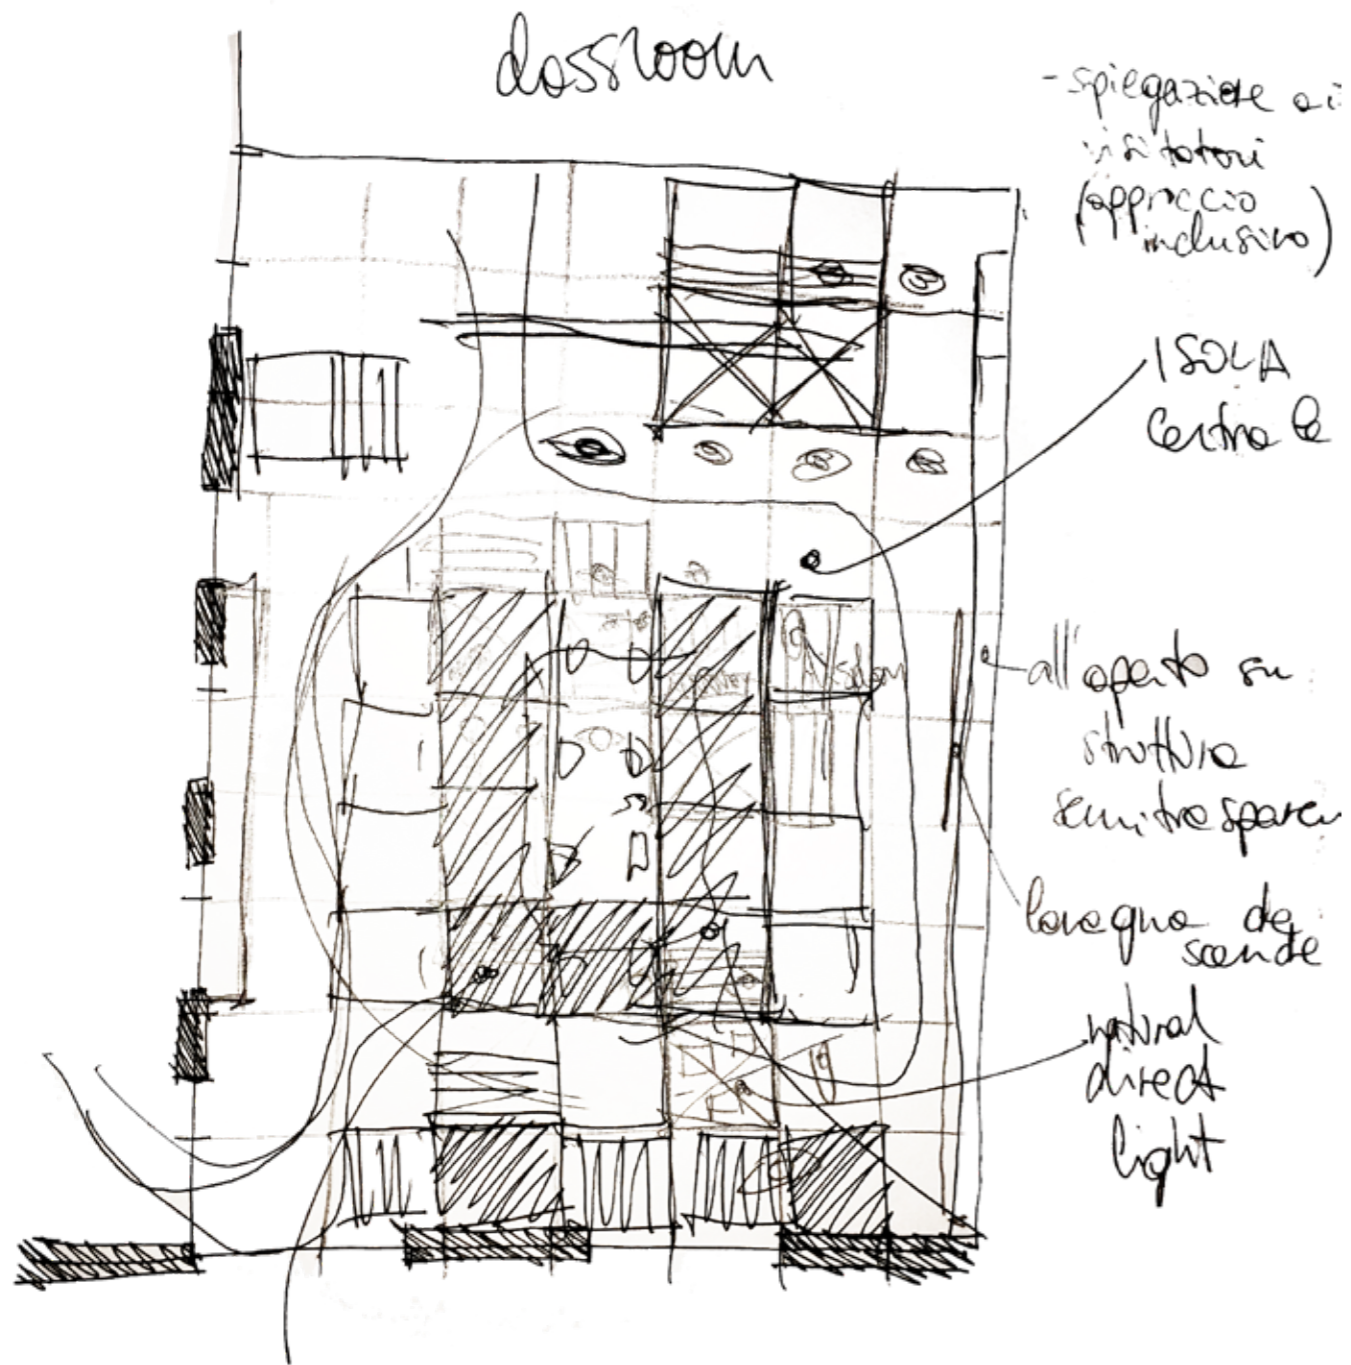 classroom
- spiegazione ai
visitatori
(approccio
inclusivo)
ISOLA
centrale
all'aperto su
struttura
semitrasparen
lavagna
scende
natural
direct
light